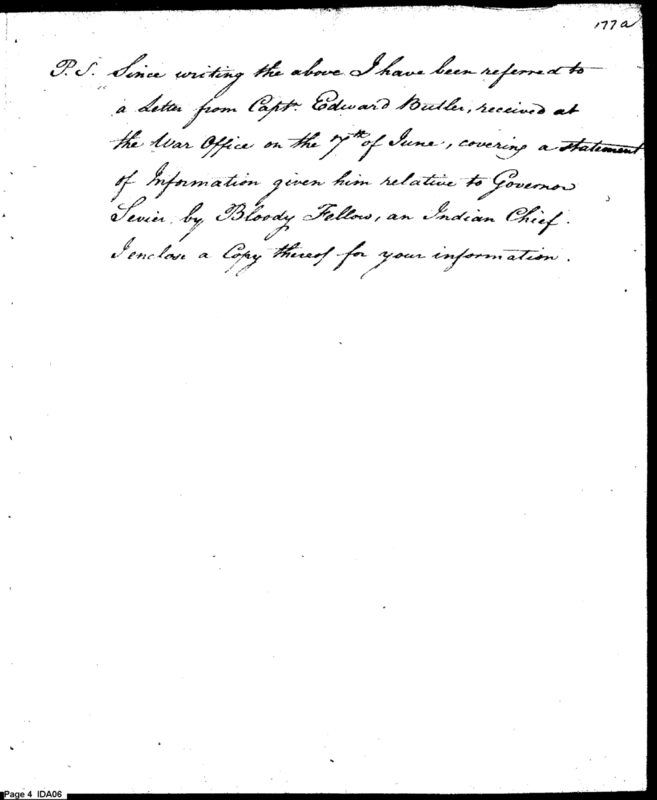 177a
P.S. Since writing the above I have been referred to
a Letter from Capt. Edward Butler, received at
the War Office on the 7th of June, covering a statement
of Information given him relative to Governor
Sevier by Bloody Fellow, an Indian Chief.
I enclose a Copy thereof for your information.
Page 4 IDA06